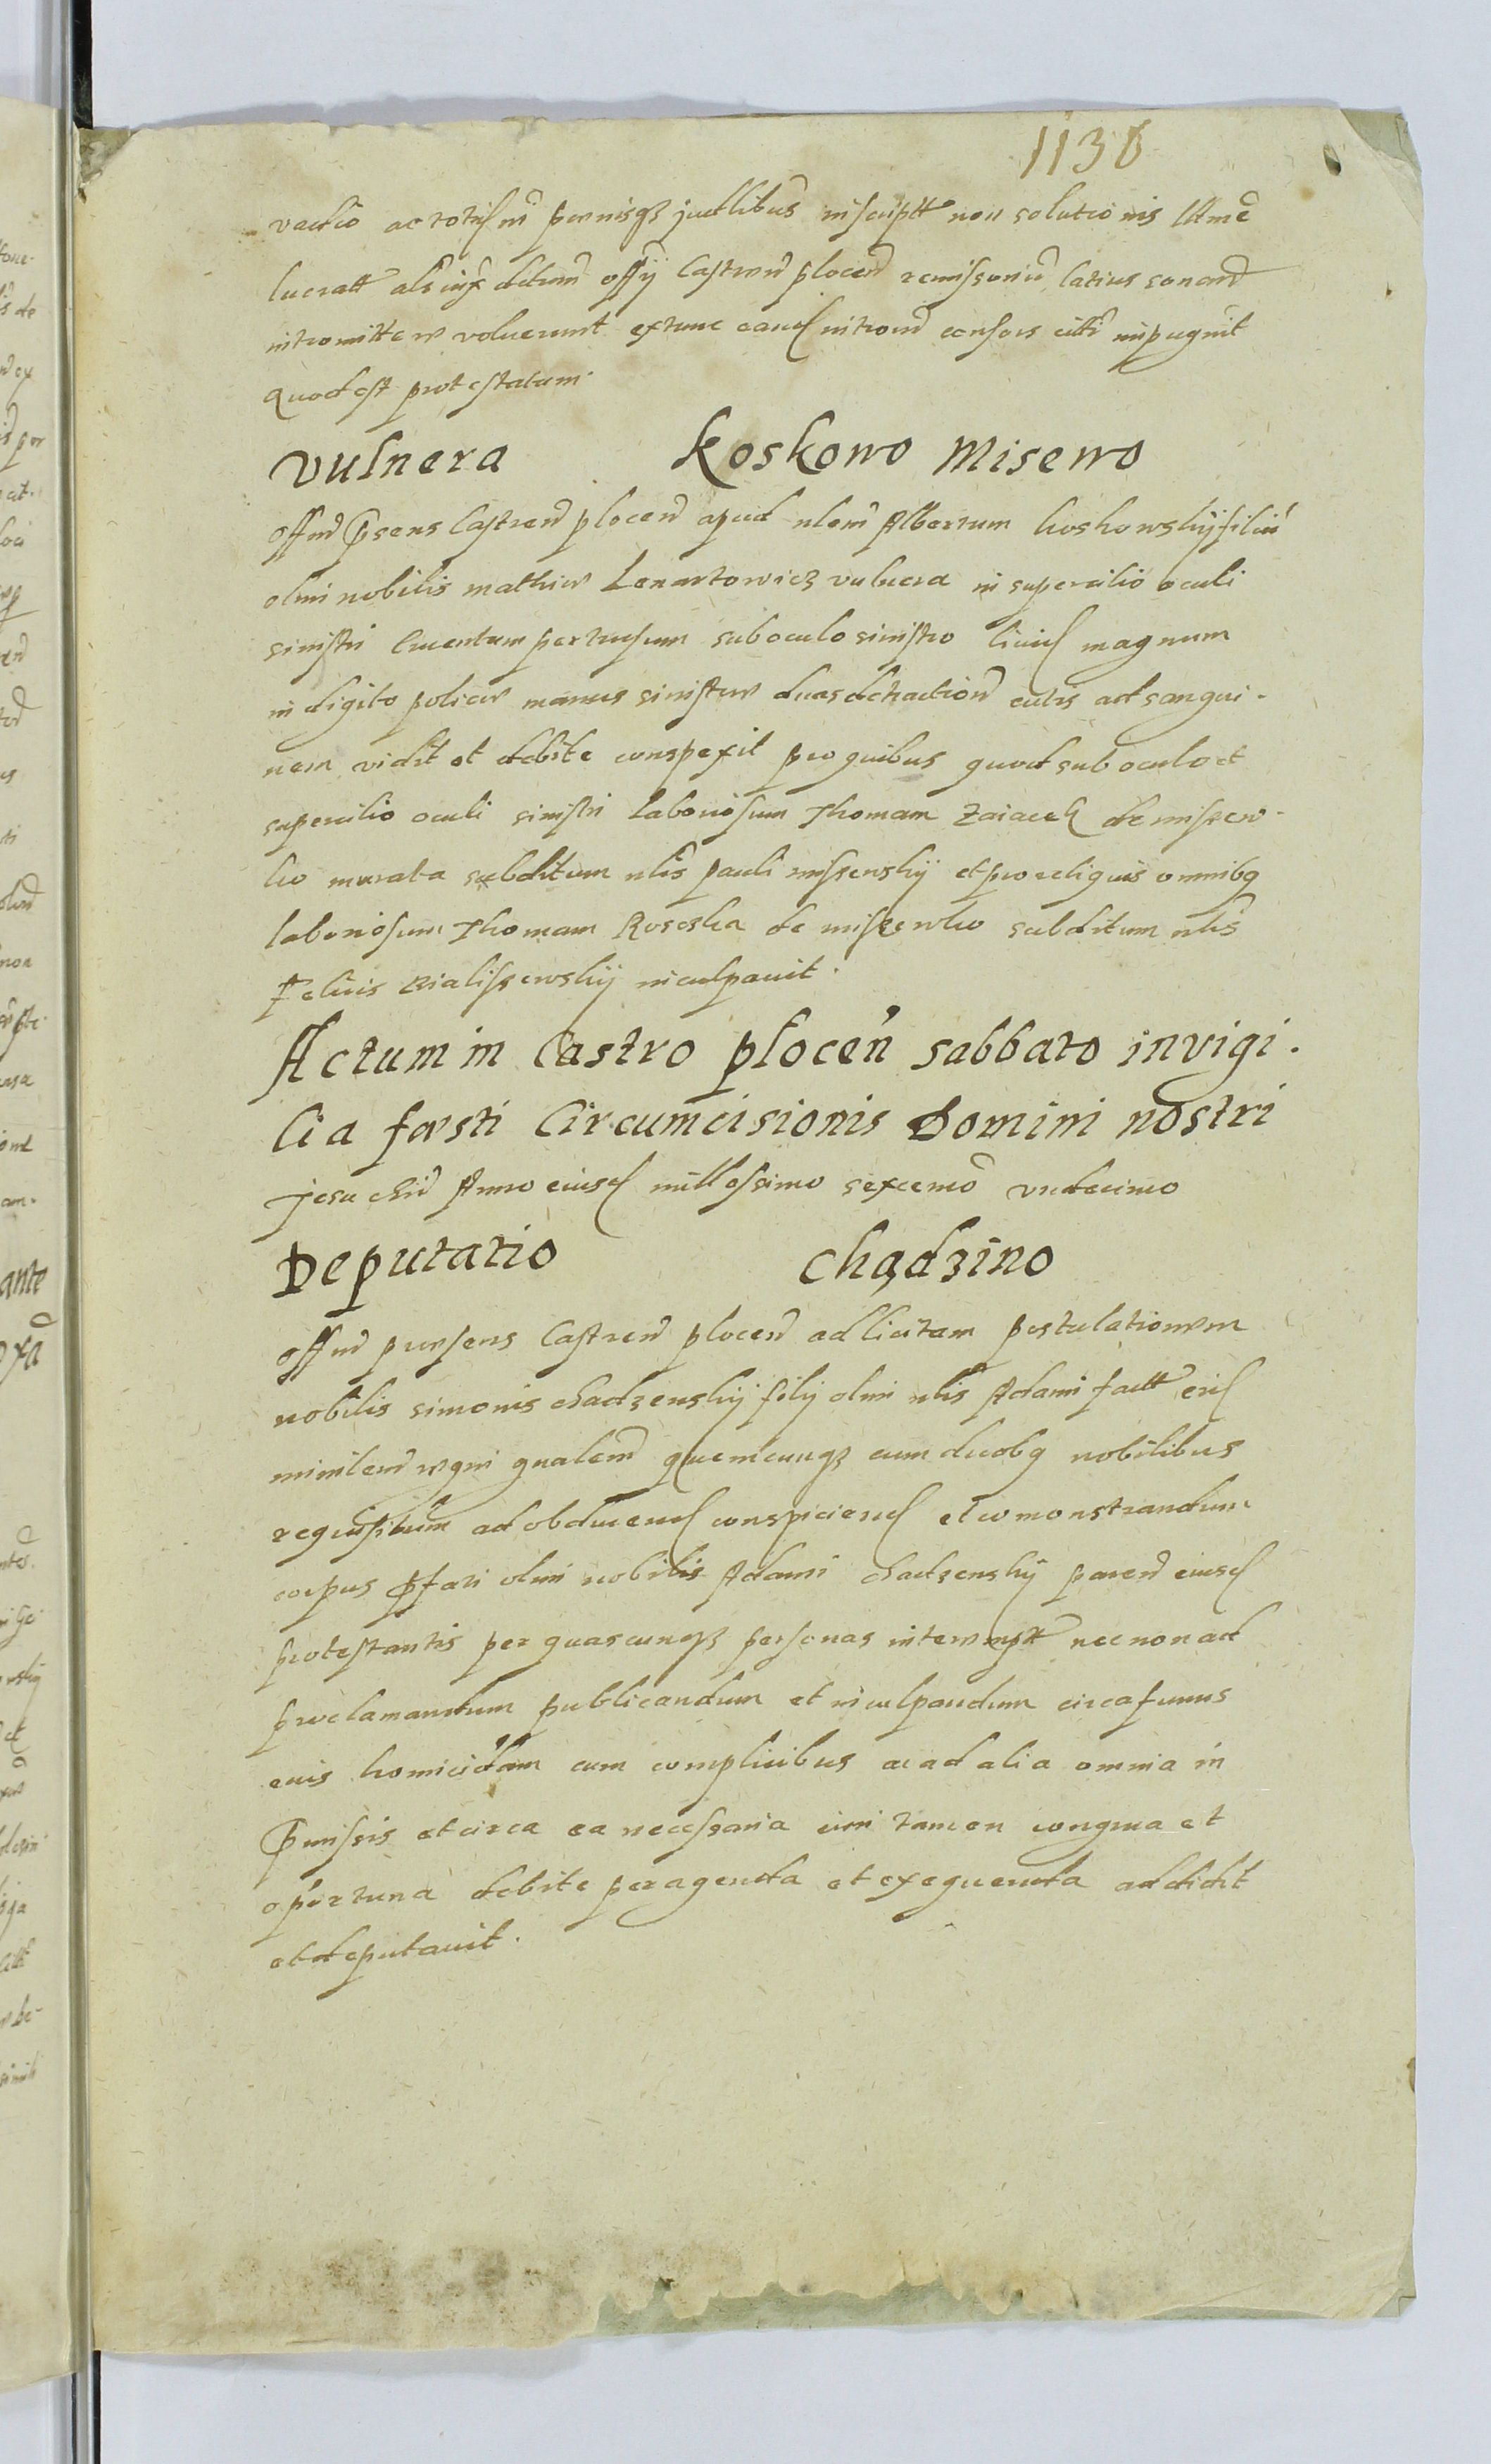 1138
vadio ac totis in pœnisqz judlibus inscriptt non solutionis
lucratt als iux ditum offy Castren plocen remissoniu latius sonand
intromittere voluerunt extunc eand introm consors impugnit
quod est protestatum.
Vulnera Koskowo Misewo
Offm Psens Castren plocen apud nlem Albertum koskowskij filiu
olim nobilis mathiæ Lenartowicz vulnera in supercilio oculi
sinistri Cruentum pertusum sub oculo sinistro livid magnum
in digito policæ manus sinistræ duas detraction cutis ad sangui-
nem vidit et debite conspexit pro quibus quod sub oculo et
supercilio oculi sinistri laboriosum Thomam Zaiacek de missew-
ko murata subditum nlis pauli missewskij et pro reliquis omnibq
laboriosum Thomam Roseska de miszewko subditum nlis
Felicis Bialissewskij inculpavit.
Actum in Castro plocen sabbato in vigi.
lia fæsti Circumcisionis Domini nostri
Jesu chri Anno eiusd millessimo sexcemo undecimo
Deputatio Chądzino
Offm præsens Castren plocen ad licitam postulationem
nobilis simonis chadzenskij filij olim nlis Adami factt
minilem regni gnalem quemcunqz cum duobq nobilibus
requisitum ad obducend conspiciend et comonstrandum
corpus Pfati olim nobilis Adami chadzenskij paren eiusd
protestantis per quascunqz personas interempt nec non ad
proclamandum publicandum et inculpandum circa funus
eius homicidam cum complicibus ac ad alia omnia in
Pmissis et circa ea necessaria iuri tamen congrua et
oportuna debite peragenda et exequenda addidit
et deputavit.